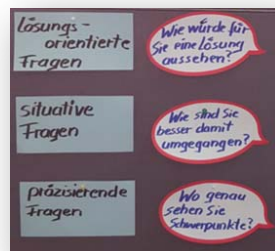 lösungs-
orientierte
Fragen
Wie würde für
Sie eine Lösung
aussehen?
situative
Fragen
Wie sind Sie
besser damit
umgegangen?
präzisierende
Fragen
Wo genau
sehen Sie
Schwerpunkte?